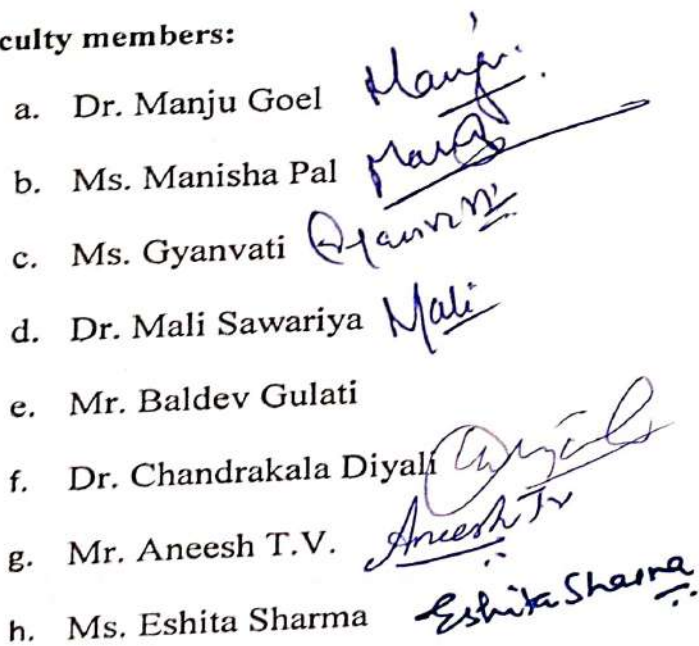 culty members:
a. Dr. Manju Goel Manju
b. Ms. Manisha Pal
c. Ms. Gyanvati Gyanvati
d. Dr. Mali Sawariya Mali
e. Mr. Baldev Gulati
f. Dr. Chandrakala Diyali
g. Mr. Aneesh T.V. Aneesh Tv
h. Ms. Eshita Sharma Eshita Sharma